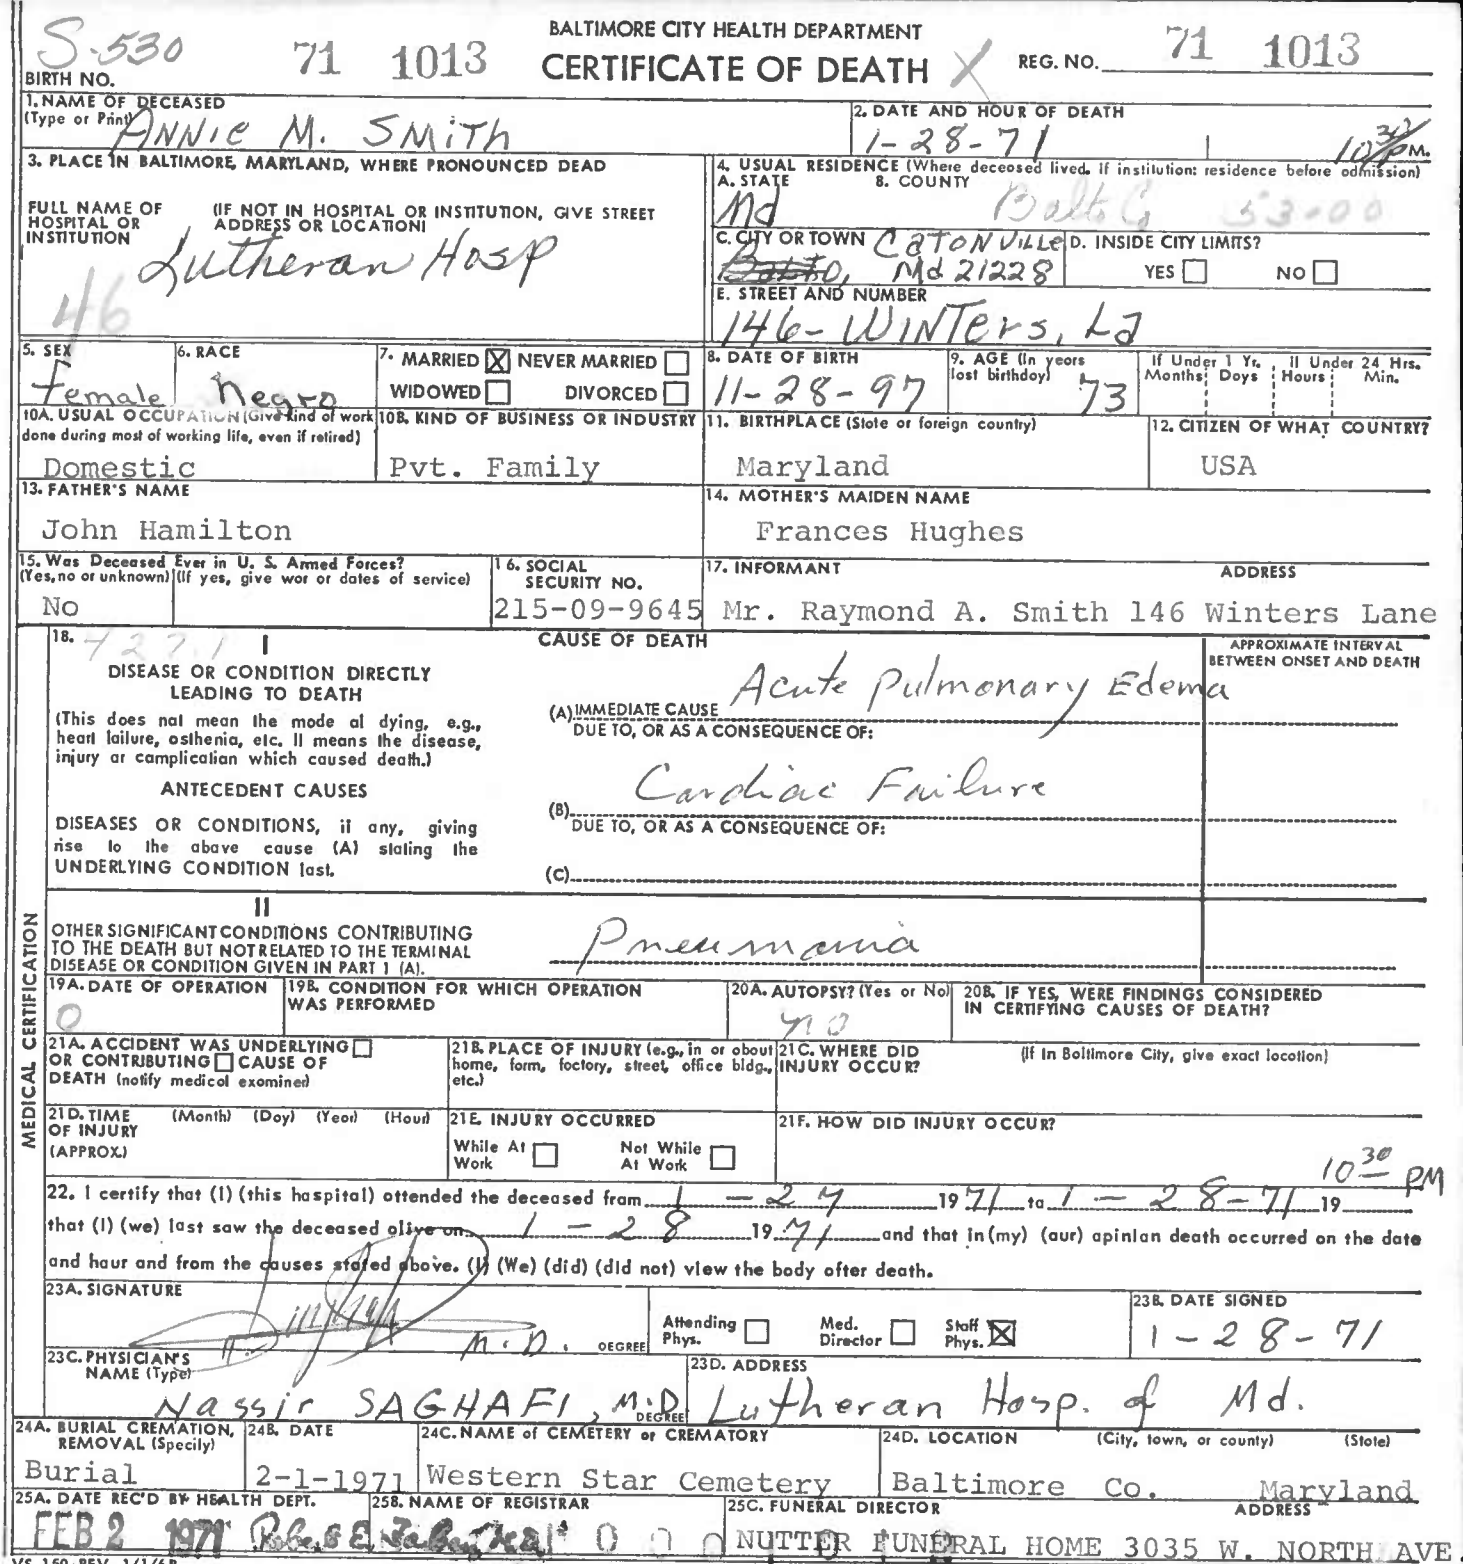 BALTIMORE CITY HEALTH DEPARTMENT
S-530 71 1013 CERTIFICATE OF DEATH X REG. NO. 71 1013
BIRTH NO.
1. NAME OF DECEASED (Type or Print) ANNIE M. SMITH
2. DATE AND HOUR OF DEATH 1-28-71 10 30 P M.
3. PLACE IN BALTIMORE, MARYLAND, WHERE PRONOUNCED DEAD
FULL NAME OF HOSPITAL OR INSTITUTION (IF NOT IN HOSPITAL OR INSTITUTION, GIVE STREET ADDRESS OR LOCATION)
Lutheran Hosp
46
4. USUAL RESIDENCE (Where deceased lived. If institution: residence before admission)
A. STATE Md B. COUNTY Balto Co 53-00
C. CITY OR TOWN CATONVILLE Md 21228
D. INSIDE CITY LIMITS? YES NO
E. STREET AND NUMBER
146- WINTERS, La
5. SEX Female
6. RACE Negro
7. MARRIED X NEVER MARRIED
WIDOWED DIVORCED
8. DATE OF BIRTH 11-28-97
9. AGE (In years last birthday) 73
If Under 1 Yr. Months Days If Under 24 Hrs. Hours Min.
10A. USUAL OCCUPATION (Give kind of work done during most of working life, even if retired) Domestic
10B. KIND OF BUSINESS OR INDUSTRY Pvt. Family
11. BIRTHPLACE (State or foreign country) Maryland
12. CITIZEN OF WHAT COUNTRY? USA
13. FATHER'S NAME John Hamilton
14. MOTHER'S MAIDEN NAME Frances Hughes
15. Was Deceased Ever in U. S. Armed Forces? (Yes, no or unknown) (If yes, give war or dates of service) No
16. SOCIAL SECURITY NO. 215-09-9645
17. INFORMANT ADDRESS
Mr. Raymond A. Smith 146 Winters Lane
MEDICAL CERTIFICATION
18. 427.1 I CAUSE OF DEATH
APPROXIMATE INTERVAL BETWEEN ONSET AND DEATH
DISEASE OR CONDITION DIRECTLY LEADING TO DEATH
(This does not mean the mode of dying, e.g., heart failure, asthenia, etc. It means the disease, injury or complication which caused death.)
(A) IMMEDIATE CAUSE Acute Pulmonary Edema
DUE TO, OR AS A CONSEQUENCE OF:
ANTECEDENT CAUSES
DISEASES OR CONDITIONS, if any, giving rise to the above cause (A) stating the UNDERLYING CONDITION last.
(B) Cardiac Failure
DUE TO, OR AS A CONSEQUENCE OF:
(C)
II
OTHER SIGNIFICANT CONDITIONS CONTRIBUTING TO THE DEATH BUT NOT RELATED TO THE TERMINAL DISEASE OR CONDITION GIVEN IN PART 1 (A).
Pneumonia
19A. DATE OF OPERATION 0
19B. CONDITION FOR WHICH OPERATION WAS PERFORMED
20A. AUTOPSY? (Yes or No) no
20B. IF YES, WERE FINDINGS CONSIDERED IN CERTIFYING CAUSES OF DEATH?
21A. ACCIDENT WAS UNDERLYING OR CONTRIBUTING CAUSE OF DEATH (notify medical examiner)
21B. PLACE OF INJURY (e.g., in or about home, farm, factory, street, office bldg., etc.)
21C. WHERE DID INJURY OCCUR? (If in Baltimore City, give exact location)
21D. TIME OF INJURY (APPROX.) (Month) (Day) (Year) (Hour)
21E. INJURY OCCURRED
While At Work Not While At Work
21F. HOW DID INJURY OCCUR?
10 30 PM
22. I certify that (I) (this hospital) attended the deceased from 1 - 27 1971 to 1 - 28-71 19
that (I) (we) last saw the deceased alive on 1 - 28 1971 and that in (my) (our) opinion death occurred on the date
and hour and from the causes stated above. (I) (We) (did) (did not) view the body after death.
23A. SIGNATURE M.D. DEGREE
Attending Phys. Med. Director Staff Phys. X
23B. DATE SIGNED 1-28-71
23C. PHYSICIAN'S NAME (Type) Nassir SAGHAFI, M.D DEGREE
23D. ADDRESS Lutheran Hosp. of Md.
24A. BURIAL CREMATION, REMOVAL (Specify) Burial
24B. DATE 2-1-1971
24C. NAME of CEMETERY or CREMATORY Western Star Cemetery
24D. LOCATION (City, town, or county) (State) Baltimore Co. Maryland
25A. DATE REC'D BY HEALTH DEPT. FEB 2 1971
25B. NAME OF REGISTRAR Robert E.
25C. FUNERAL DIRECTOR ADDRESS
NUTTER FUNERAL HOME 3035 W. NORTH AVE
VS 150 REV. 1/1/68